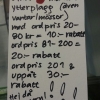 ytterplagg (även
vantar/mössor)
med ord pris 20-
80 kr = 10:- rabatt
ord pris 81-200 =
20:- rabatt
ord pris 201 &
uppåt 30:-
rabatt